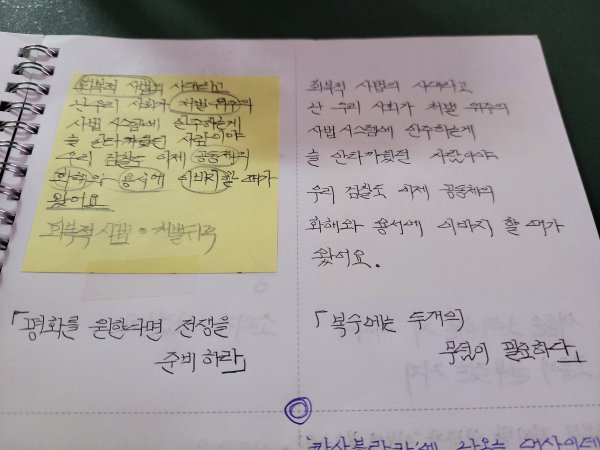 회복적 사법의 사대라고
산 우리 사회가 처벌 위주의
사법 시스템에 안주하는게
늘 안타까웠던 사람이야
우리 검찰도 이제 공동체의
화해와 용서에 이바지 할 때가
왔어요
회복적 사법 • 처벌위주
「평화를 원한다면 전쟁을
준비하라」
회복적 사법의 사대라고
산 우리 사회가 처벌 위주의
사법 시스템에 안주하는게
늘 안타까웠던 사람이야
우리 검찰도 이제 공동체의
화해와 용서에 이바지 할 때가
왔어요.
「복수에는 두개의
무덤이 필요하다」
'카사블랑카'에 나오는 대사인데